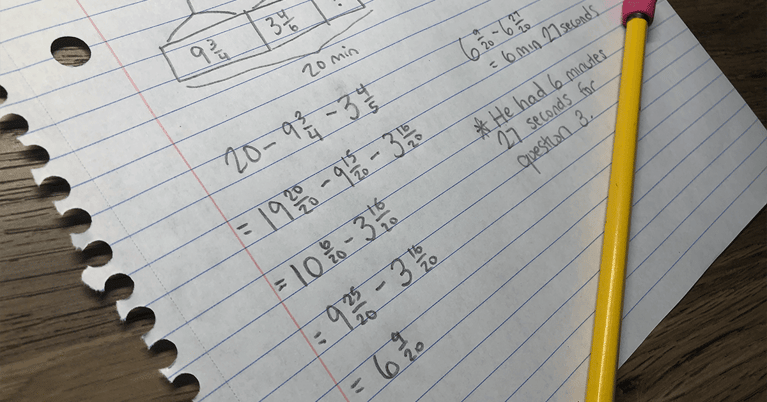 9 3/4 3 4/5 ?
20 min
20 - 9 3/4 - 3 4/5
= 19 20/20 - 9 15/20 - 3 16/20
= 10 5/20 - 3 16/20
= 9 25/20 - 3 16/20
= 6 9/20
6 9/20 - 6 27/20
= 6 min 27 seconds
* He had 6 minutes
27 seconds for
question 3.